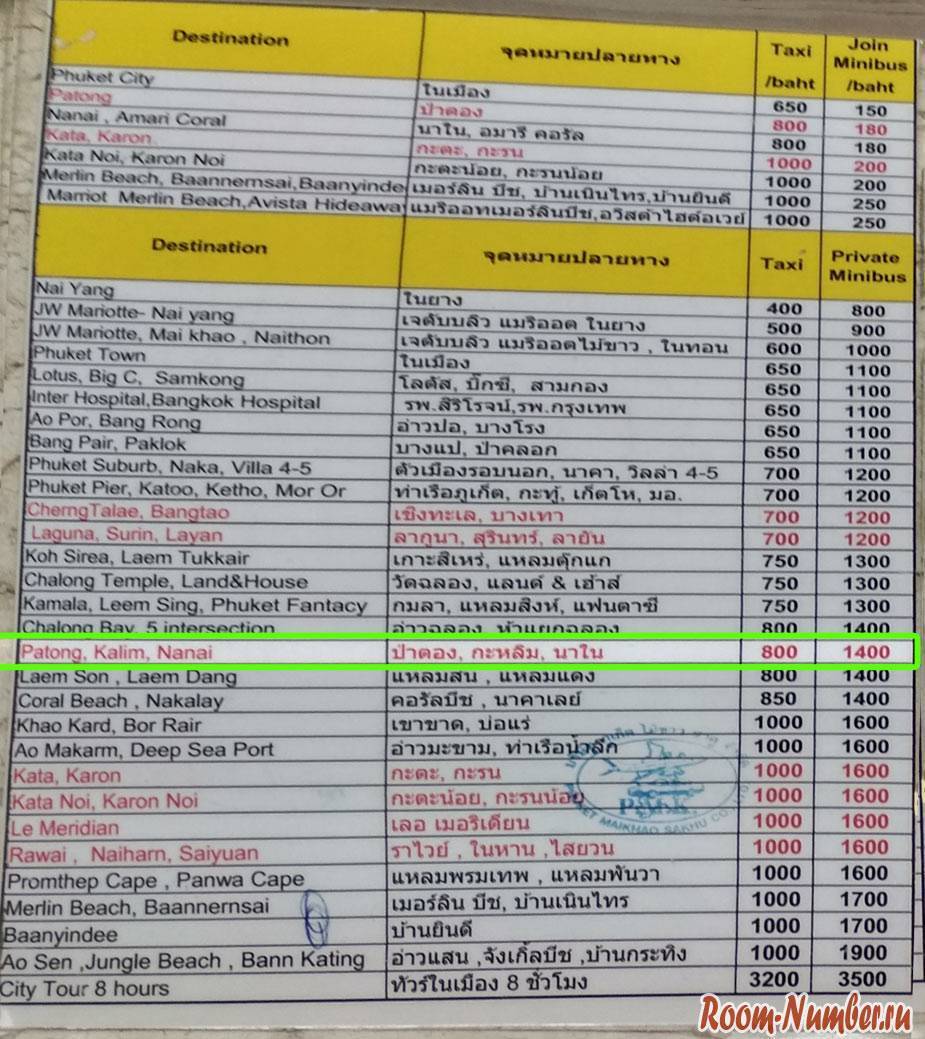 Destination จุดหมายปลายทาง Taxi /baht Join Minibus /baht
Phuket City ในเมือง 650 150
Patong ป่าตอง 800 180
Nanai , Amari Coral นาใน, อมารี คอรัล 800 180
Kata, Karon กะตะ, กะรน 1000 200
Kata Noi, Karon Noi กะตะน้อย, กะรนน้อย 1000 200
Merlin Beach, Baannernsai,Baanyinde เมอร์ลิน บีช, บ้านเนินไทร,บ้านยินดี 1000 250
Marriot Merlin Beach,Avista Hideawa แมริออทเมอร์ลินบีช,อวิสต้าไฮด์อเวย์ 1000 250
Destination จุดหมายปลายทาง Taxi Private Minibus
Nai Yang ในยาง 400 800
JW Mariotte- Nai yang เจดับบลิว แมริออต ในยาง 500 900
JW Mariotte, Mai khao , Naithon เจดับบลิว แมริออตไม้ขาว , ในทอน 600 1000
Phuket Town ในเมือง 650 1100
Lotus, Big C, Samkong โลตัส, บิ๊กซี, สามกอง 650 1100
Inter Hospital,Bangkok Hospital รพ.สิริโรจน์,รพ.กรุงเทพ 650 1100
Ao Por, Bang Rong อ่าวปอ, บางโรง 650 1100
Bang Pair, Paklok บางแป, ป่าคลอก 650 1100
Phuket Suburb, Naka, Villa 4-5 ตัวเมืองรอบนอก, นาคา, วิลล่า 4-5 700 1200
Phuket Pier, Katoo, Ketho, Mor Or ท่าเรือภูเก็ต, กะทู้, เก็ตโห, มอ. 700 1200
CherngTalae, Bangtao เชิงทะเล, บางเทา 700 1200
Laguna, Surin, Layan ลากูนา, สุรินทร์, ลายัน 700 1200
Koh Sirea, Laem Tukkair เกาะสิเหร่, แหลมตุ๊กแก 750 1300
Chalong Temple, Land&House วัดฉลอง, แลนด์ & เฮ้าส์ 750 1300
Kamala, Leem Sing, Phuket Fantacy กมลา, แหลมสิงห์, แฟนตาซี 750 1300
Chalong Bay, 5 intersection อ่าวฉลอง, ห้าแยกฉลอง 800 1400
Patong, Kalim, Nanai ป่าตอง, กะหลิม, นาใน 800 1400
Laem Son , Laem Dang แหลมสน , แหลมแดง 800 1400
Coral Beach , Nakalay คอรัลบีช , นาคาเลย์ 850 1400
Khao Kard, Bor Rair เขาขาด, บ่อแร่ 1000 1600
Ao Makarm, Deep Sea Port อ่าวมะขาม, ท่าเรือน้ำลึก 1000 1600
Kata, Karon กะตะ, กะรน 1000 1600
Kata Noi, Karon Noi กะตะน้อย, กะรนน้อย 1000 1600
Le Meridian เลอ เมอริเดียน 1000 1600
Rawai , Naiharn, Saiyuan ราไวย์ , ในหาน ,ไสยวน 1000 1600
Promthep Cape , Panwa Cape แหลมพรมเทพ , แหลมพันวา 1000 1600
Merlin Beach, Baannernsai เมอร์ลิน บีช, บ้านเนินไทร 1000 1700
Baanyindee บ้านยินดี 1000 1700
Ao Sen ,Jungle Beach , Bann Kating อ่าวแสน ,จังเกิ้ลบีช ,บ้านกระทิง 1000 1900
City Tour 8 hours ทัวร์ในเมือง 8 ชั่วโมง 3200 3500
MAIKHAO SAKHU CO.,
Room-Number.ru